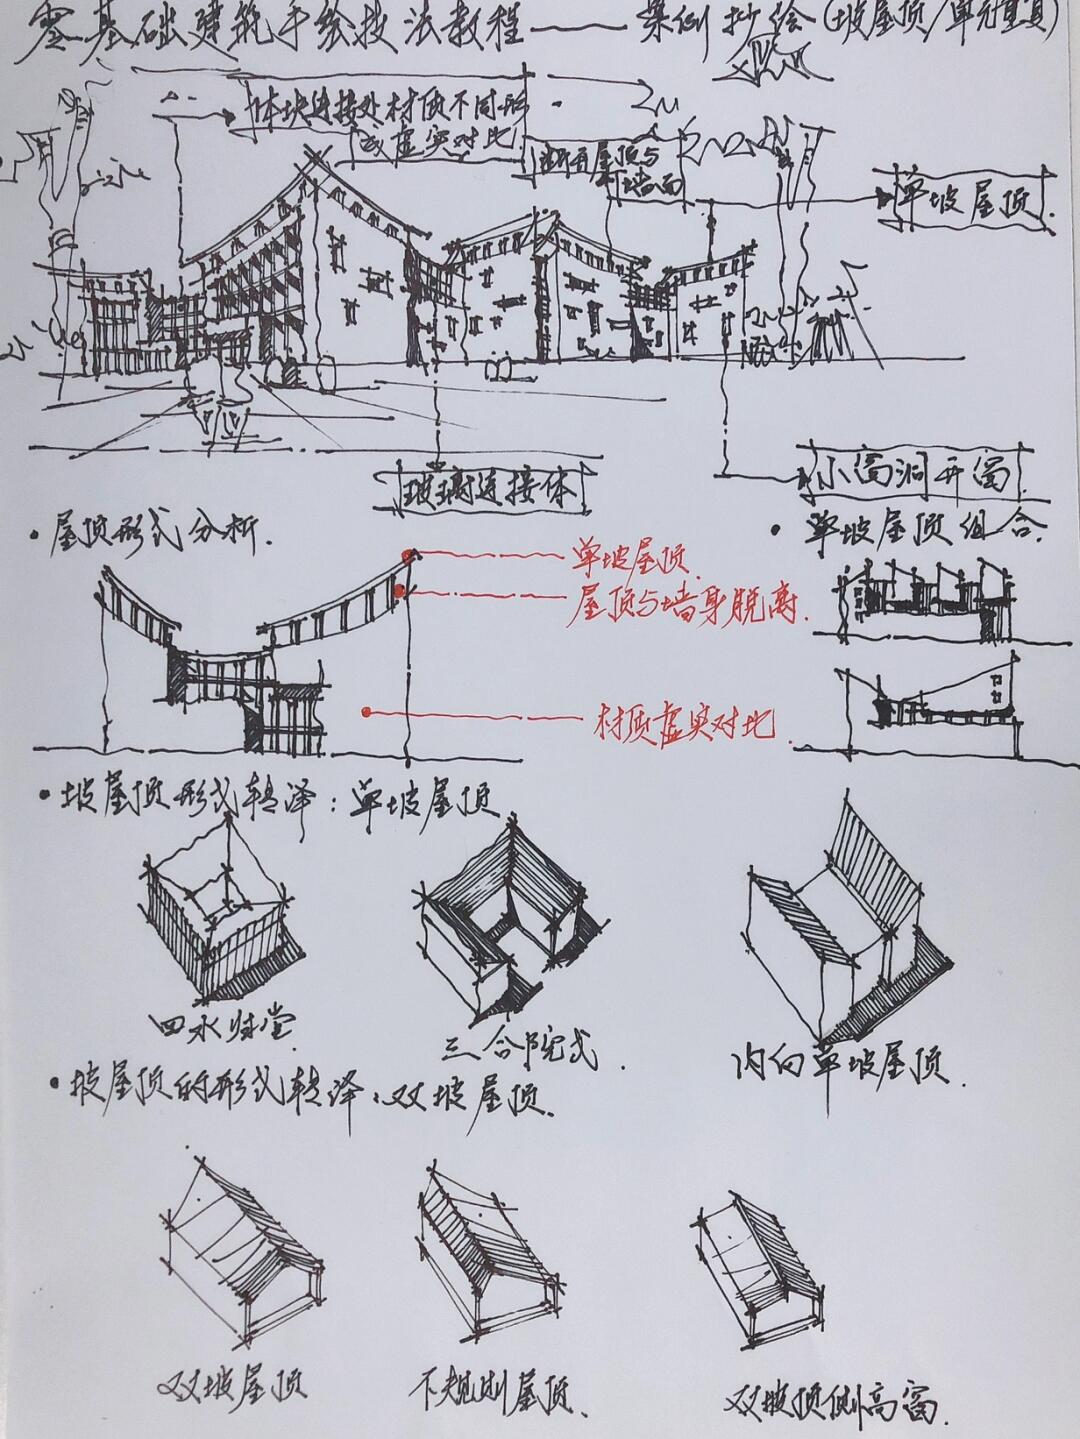 零基础建筑手绘技法教程——案例抄绘(坡屋顶/单元重复)
体块连接处材质不同形
成虚实对比
断开屋顶与
墙面
单坡屋顶.
玻璃连接体
小窗洞开窗
·屋顶形式分析.
·单坡屋顶组合.
单坡屋顶.
屋顶与墙身脱离.
材质虚实对比.
·坡屋顶形式转译:单坡屋顶
四水归堂.
三合院式.
内向单坡屋顶.
·坡屋顶的形式转译:双坡屋顶.
双坡屋顶
不规则屋顶.
双坡顶侧高窗.